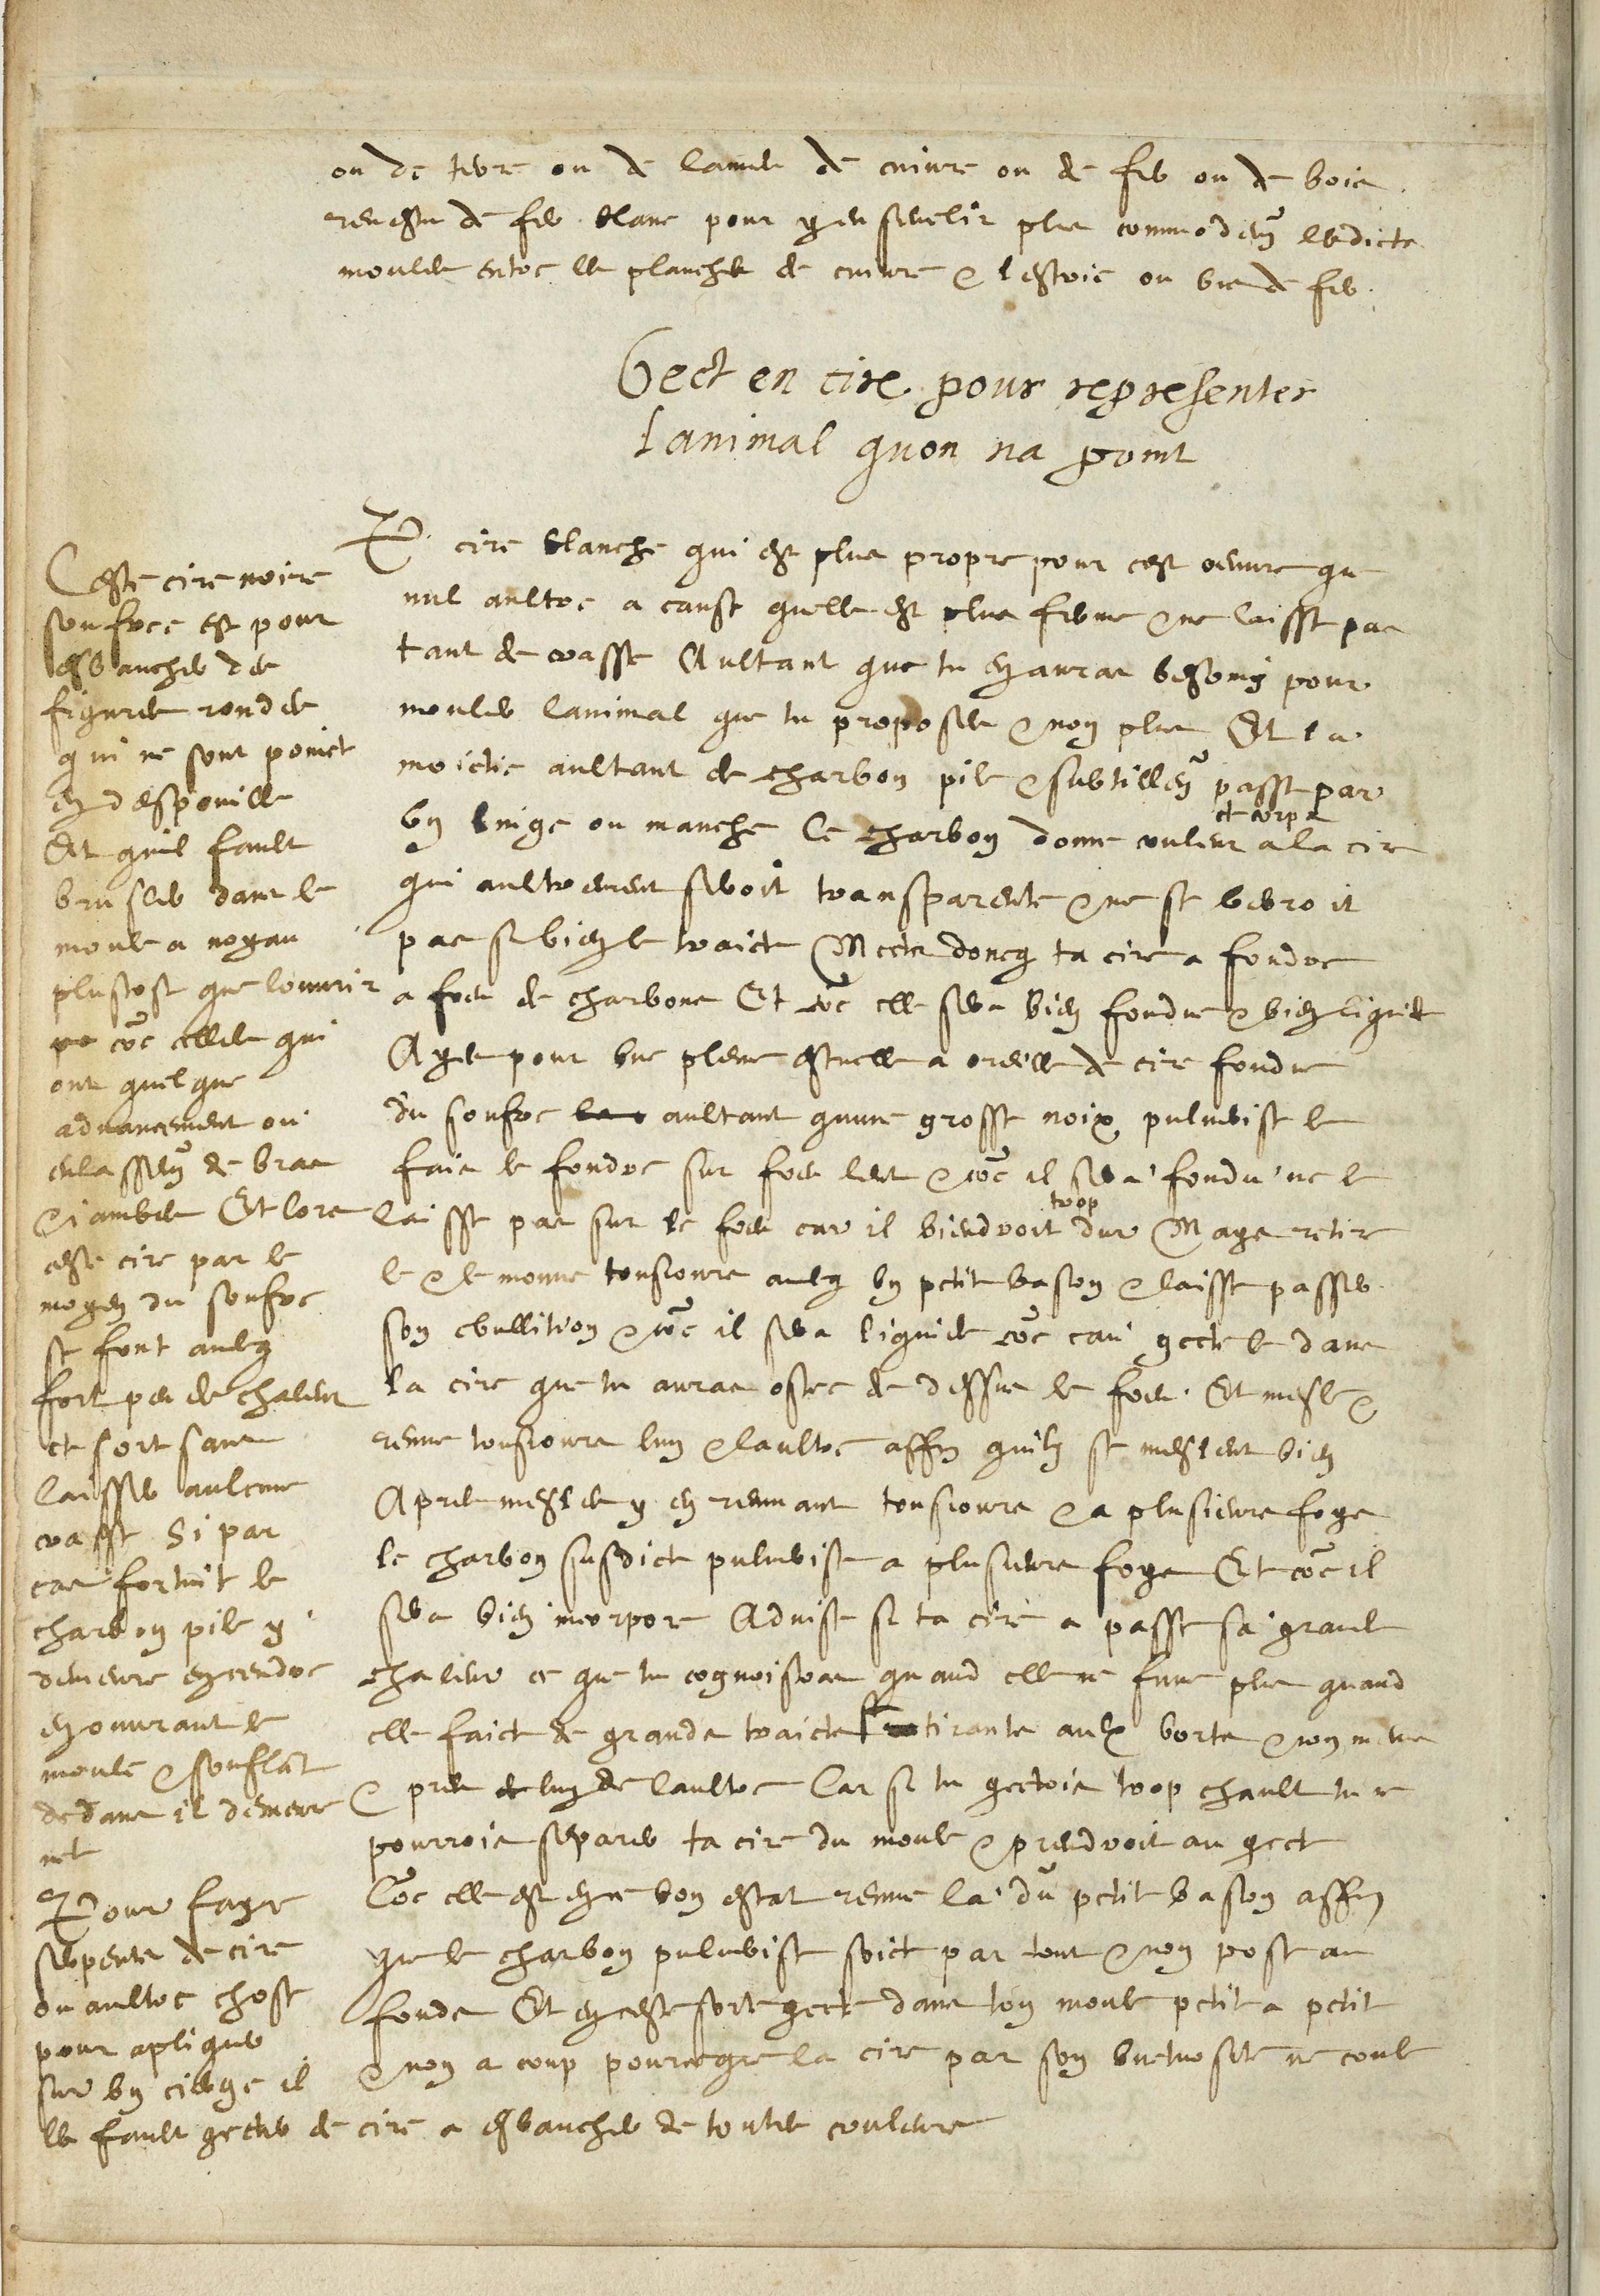 ou de terre ou de lames de cuivre ou de fer ou de bois
revestu de fer blanc pour y ensepvelir plus commodem lesdicts
moules entre les planches de cuivre & lestroic ou bien de fer
Gect en cire pour representer
lanimal quon na point
℞ cire blanche qui est plus propre pour cest oeuvre que
nul aultre a cause quelle est plus ferme & ne laisse pas
tant de crasse Aultant que tu en auras besoing pour
mouler lanimal que tu proposes & non plus Et la
moictie aultant de charbon pile & subtillem passe par
un linge ou manche Le charbon donne couleur et corps a la cire
qui aultrement seroit transparente & ne se verroit
pas si bien les traicts Mects doncq ta cire a fondre
a foeu de charbons Et co elle sera bien fondue & bien liquide
Ayes pour une pleine escuelle a oreilles de cire fondue
du soufre aultant quune grosse noix pulverise le
fais le fondre sur foeu lent & co il sera fondu ne le
laisse pas sur le foeu car il viendroit trop dur Mays retire
le & le mouve tousjours avecq un petit baston & laisse passer
son ebullition & co il sera liquide co eau gecte le dans
la cire que tu auras ostee de dessus le foeu Et mesle &
remue tousjours lun & laultre affin quilz se meslent bien
Apres mesles y en remuant tousjours & a plusieurs foys
le charbon susdict pulverise a plusieurs foys Et co il
sera bien incorpore Advise si ta cire a passe sa grande
chaleur ce que tu cognoistras quand elle ne fume plus quand
elle faict de grands traicts tirants aulx borts & non menus
& pres lun de laultre Car si tu gectois trop chault tu ne
pourrois separer ta cire du moule & prendroit au gect
Co elle est en ce bon estat remue la du petit baston affin
que le charbon pulverise soict par tout & non pose au
fonds Et en ceste sorte gecte dans ton moule petit a petit
& non a coup pource que la cire par son unctuosite ne coule
Ceste cire noire
soufree est pour
esbaucher des
figures rondes
qui ne sont poinct
en despouille
Et quil fault
brusler dans le
moule a noyau
plustost que louvrir
co celles qui
ont quelque
advancement ou
enlassem de bras
& jambes Et lors
ceste cire par le
moyen du soufre
se font avecq
fort peu de chaleur
et sort sans
laisser aulcune
crasse Si par
cas fortuit le
charbon pile y
demeure en cendre
en ouvrant le
moule & souflat
dedans il demeure
net
Pour faire
serpents de cire
ou aultre chose
pour apliquer
sur un cierge il
les fault gecter de cire a esbaucher de toutes couleurs